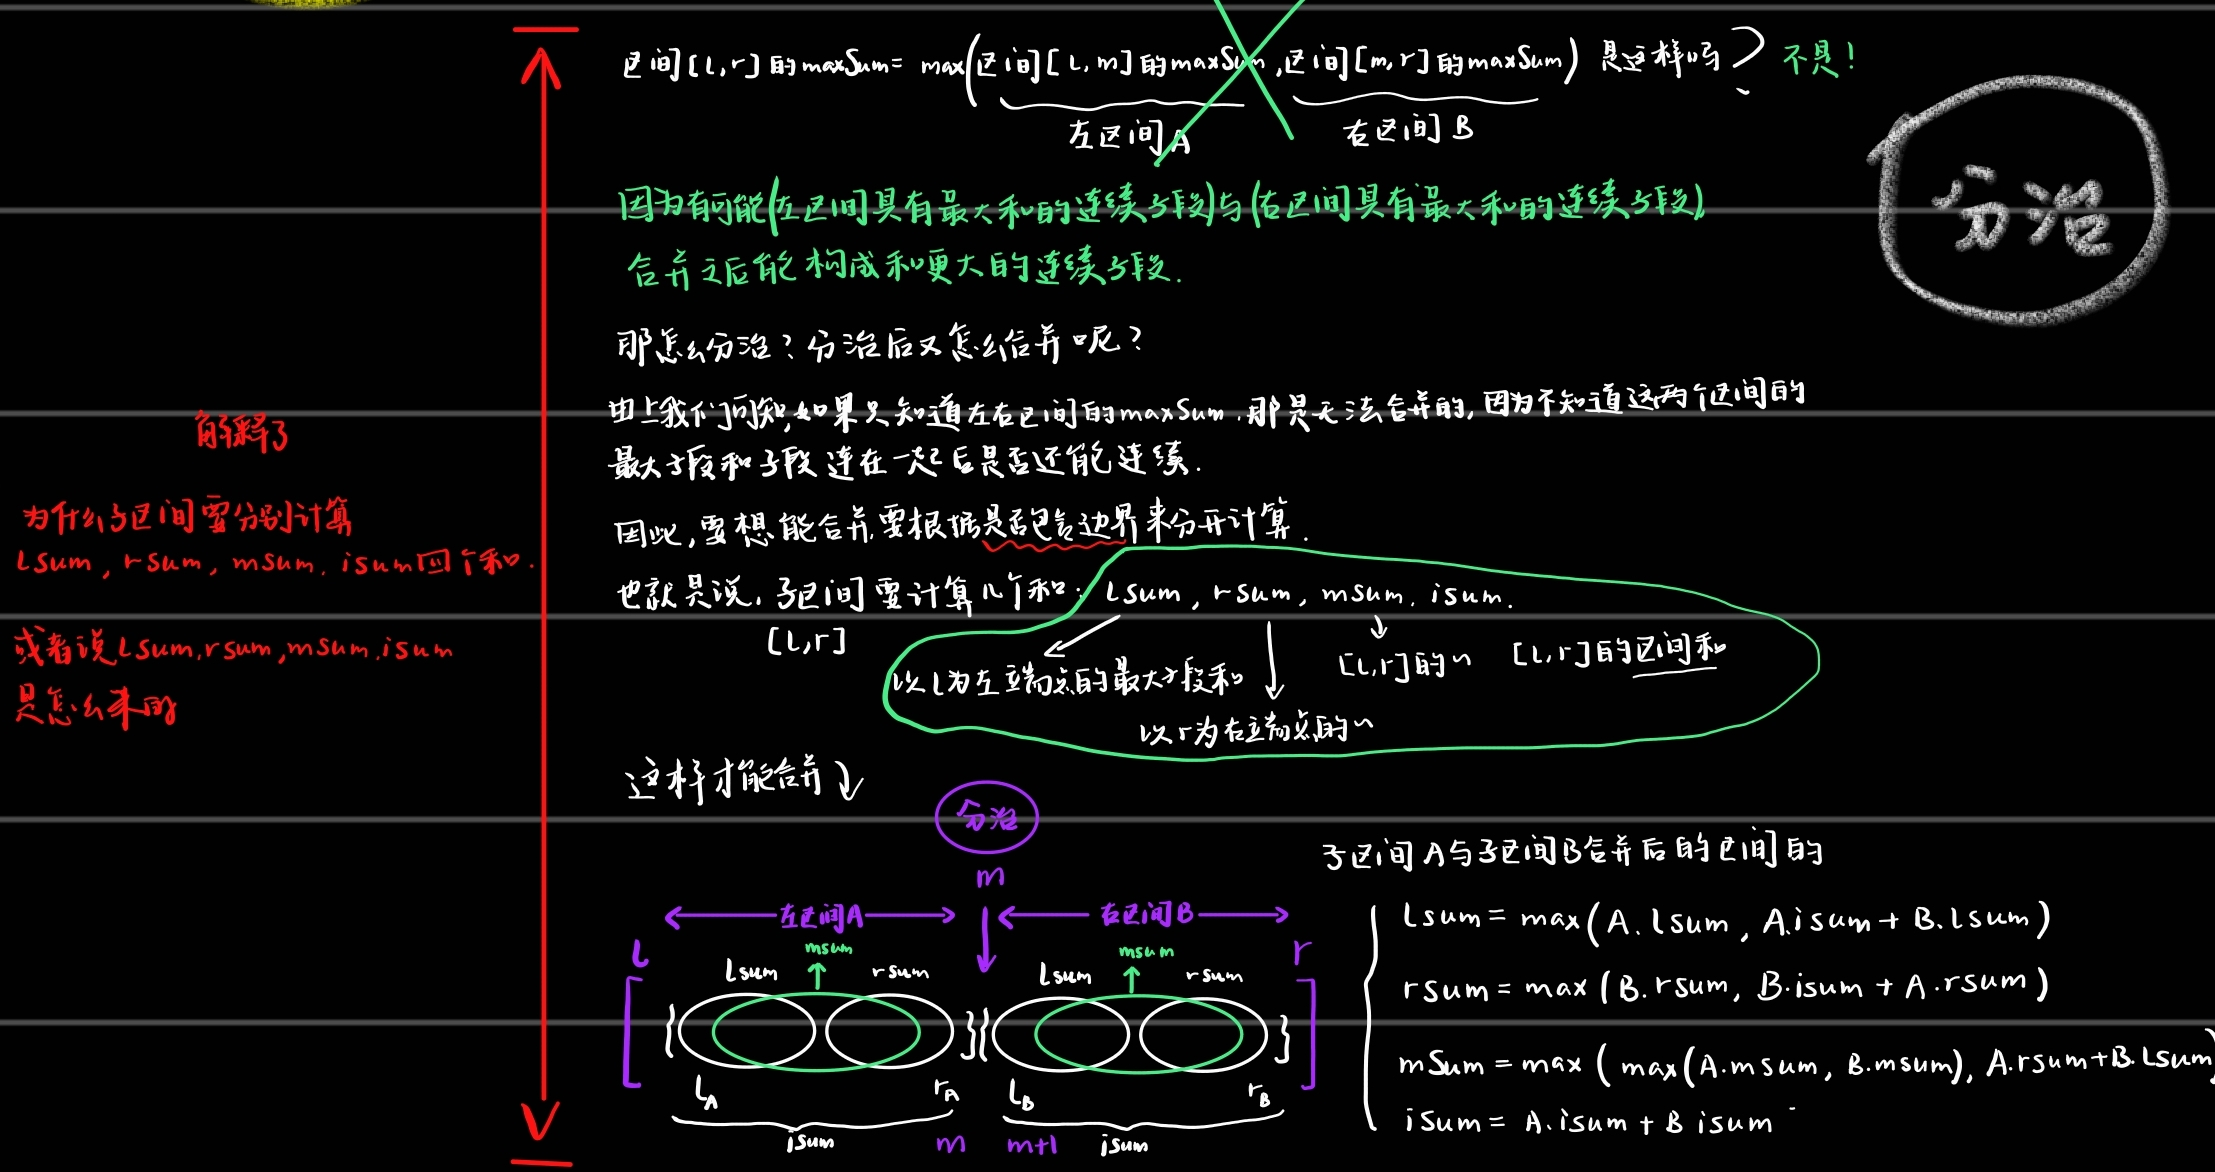 区间[l,r]的maxSum= max(区间[l,m]的maxSum,区间[m,r]的maxSum) 是这样吗? 不是!
左区间A 右区间B
分治
因为有可能(左区间具有最大和的连续子段)与(右区间具有最大和的连续子段)
合并之后能构成和更大的连续子段.
那怎么分治?分治后又怎么合并呢?
由上我们可知,如果只知道左右区间的maxSum,那是无法合并的,因为不知道这两个区间的
最大子段和子段连在一起后是否还能连续.
因此,要想能合并,要根据是否包含边界来分开计算.
也就是说,子区间要计算几个和: lsum, rsum, msum, isum.
[l,r]
以l为左端点的最大子段和
[l,r]的~
[l,r]的区间和
以r为右端点的~
这样才能合并
解释了
为什么子区间要分别计算
lsum, rsum, msum, isum四个和.
或者说lsum,rsum,msum,isum
是怎么来的
分治
m
左区间A 右区间B
l r
lsum msum rsum lsum msum rsum
lA rA lB rB
isum m m+1 isum
子区间A与子区间B合并后的区间的
lsum = max(A.lsum, A.isum + B.lsum)
rsum = max(B.rsum, B.isum + A.rsum)
mSum = max(max(A.msum, B.msum), A.rsum+B.lsum)
iSum = A.isum + B isum